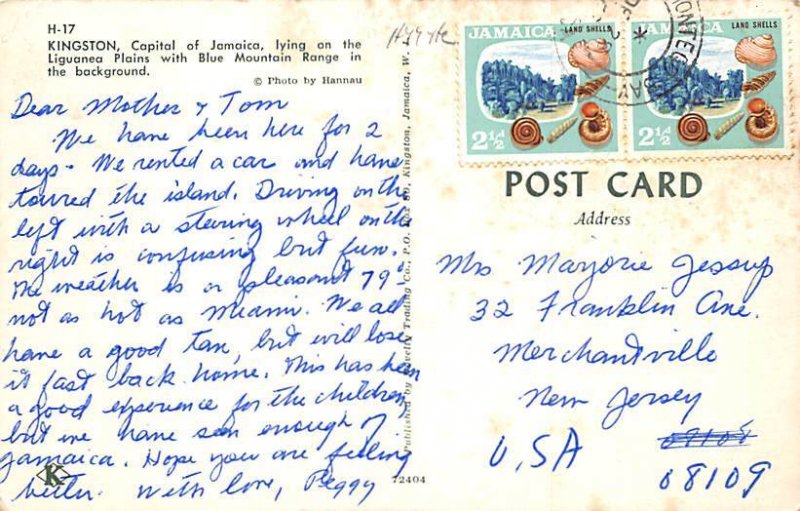 H-17
KINGSTON, Capital of Jamaica, lying on the
Liguanea Plains with Blue Mountain Range in
the background.
© Photo by Hannau
Dear Mother & Tom
We have been here for 2
days. We rented a car and have
toured the island. Driving on the
left with a steering wheel on the
right is confusing but fun.
The weather is a pleasant 79°
not as hot as Miami. We all
have a good tan, but will lose
it fast back home. This has been
a good experience for the children,
but we have seen enough of
Jamaica. Hope you are feeling
better. With love, Peggy
K
72404
Published by Novelty Trading Co., P.O. Box 80, Kingston, Jamaica, W. I.
JAMAICA LAND SHELLS
2½d
JAMAICA LAND SHELLS
2½d
MONTEGO BAY
POST CARD
Address
Mrs Marjorie Jessup
32 Franklin Ave.
Merchantville
New Jersey
U.S.A
08109